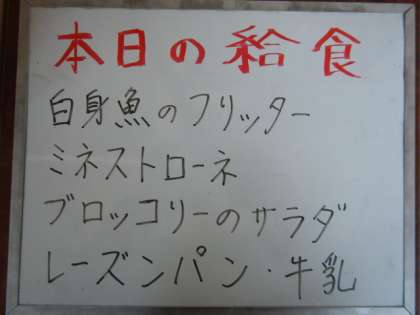 本日の給食
白身魚のフリッター
ミネストローネ
ブロッコリーのサラダ
レーズンパン・牛乳